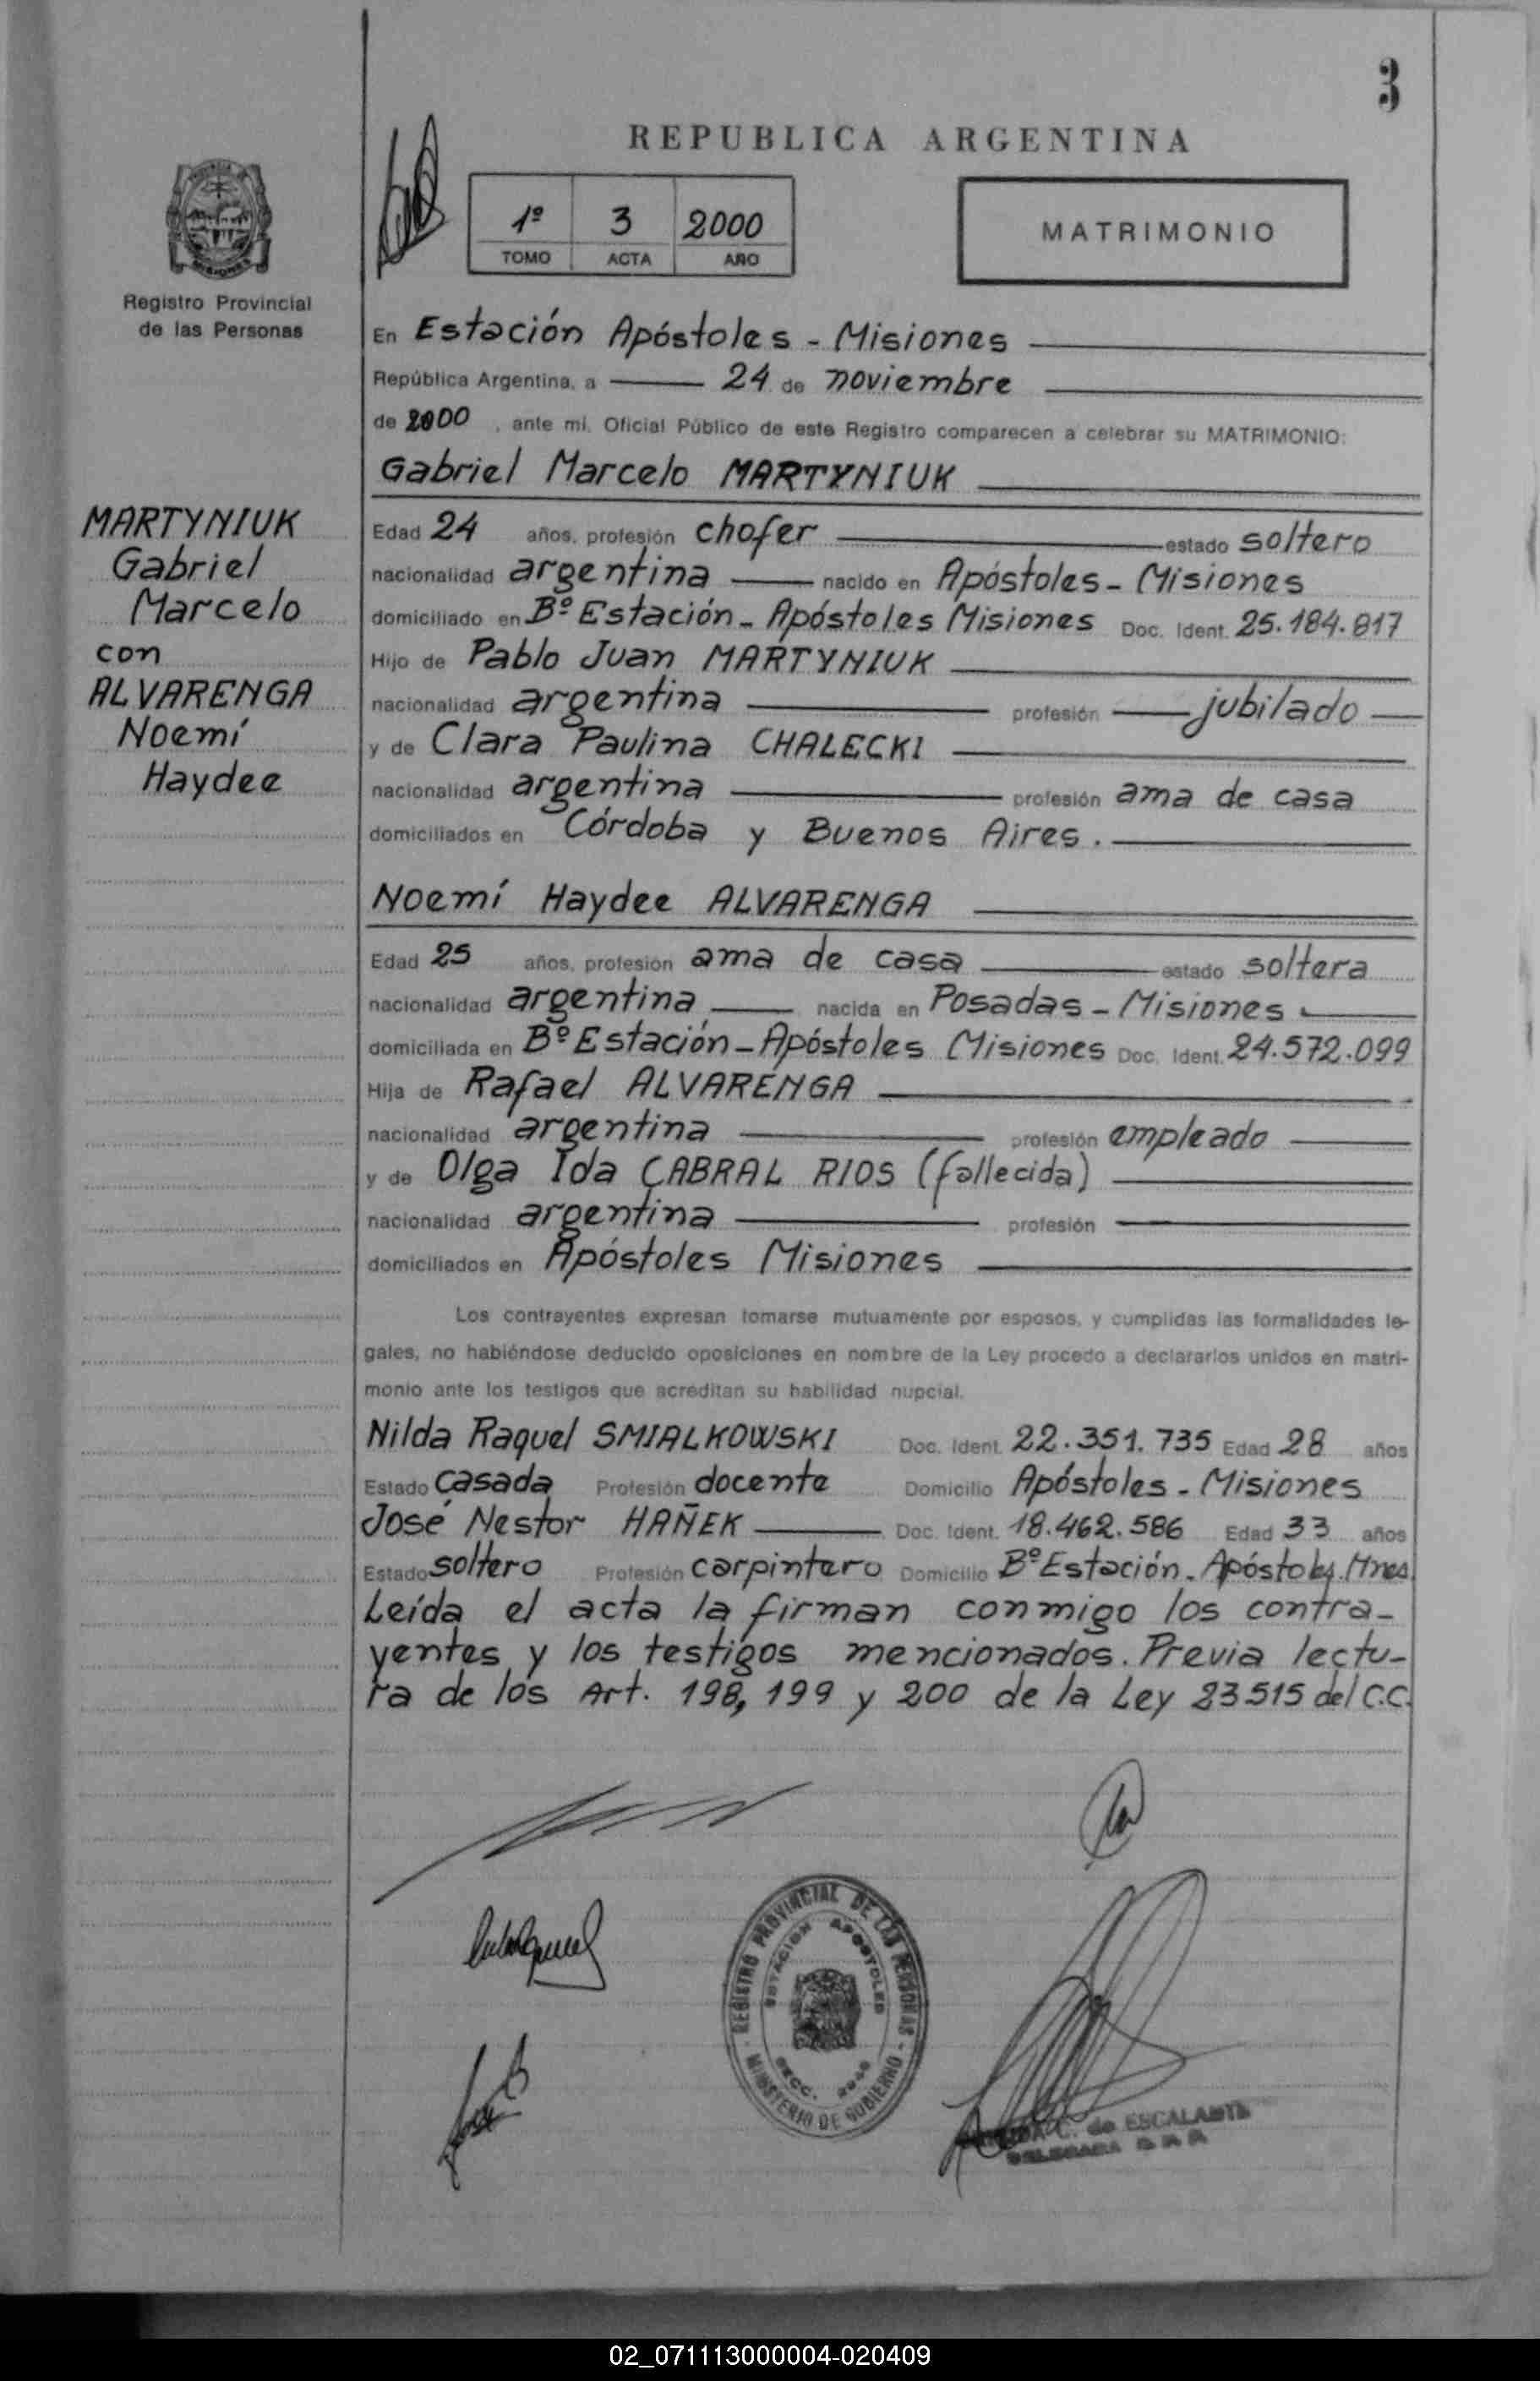 3
REPUBLICA ARGENTINA
1º 3 2000
TOMO ACTA AÑO
MATRIMONIO
Registro Provincial
de las Personas
MARTYNIUK
Gabriel
Marcelo
con
ALVARENGA
Noemí
Haydee
En Estación Apóstoles - Misiones
República Argentina, a 24 de noviembre
de 2000, ante mi, Oficial Público de este Registro comparecen a celebrar su MATRIMONIO:
Gabriel Marcelo MARTYNIUK
Edad 24 años, profesión chofer estado soltero
nacionalidad argentina nacido en Apóstoles - Misiones
domiciliado en Bº Estación - Apóstoles Misiones Doc. Ident. 25.184.817
Hijo de Pablo Juan MARTYNIUK
nacionalidad argentina profesión jubilado
y de Clara Paulina CHALECKI
nacionalidad argentina profesión ama de casa
domiciliados en Córdoba y Buenos Aires.
Noemí Haydee ALVARENGA
Edad 25 años, profesión ama de casa estado soltera
nacionalidad argentina nacida en Posadas - Misiones
domiciliada en Bº Estación - Apóstoles Misiones Doc. Ident. 24.572.099
Hija de Rafael ALVARENGA
nacionalidad argentina profesión empleado
y de Olga Ida CABRAL RIOS (fallecida)
nacionalidad argentina profesión
domiciliados en Apóstoles Misiones
Los contrayentes expresan tomarse mutuamente por esposos, y cumplidas las formalidades le-
gales, no habiéndose deducido oposiciones en nombre de la Ley procedo a declararlos unidos en matri-
monio ante los testigos que acreditan su habilidad nupcial.
Nilda Raquel SMIALKOWSKI Doc. Ident. 22.351.735 Edad 28 años
Estado casada Profesión docente Domicilio Apóstoles - Misiones
José Nestor HAÑEK Doc. Ident. 18.462.586 Edad 33 años
Estado soltero Profesión carpintero Domicilio Bº Estación - Apóstoles. Mnes.
Leída el acta la firman conmigo los contra-
yentes y los testigos mencionados. Previa lectu-
ra de los Art. 198, 199 y 200 de la Ley 23515 del C.C.
REGISTRO PROVINCIAL DE LAS PERSONAS
ESTACION APOSTOLES
SECC.
MINISTERIO DE GOBIERNO
C. de ESCALANTE
DELEGADA
02_071113000004-020409